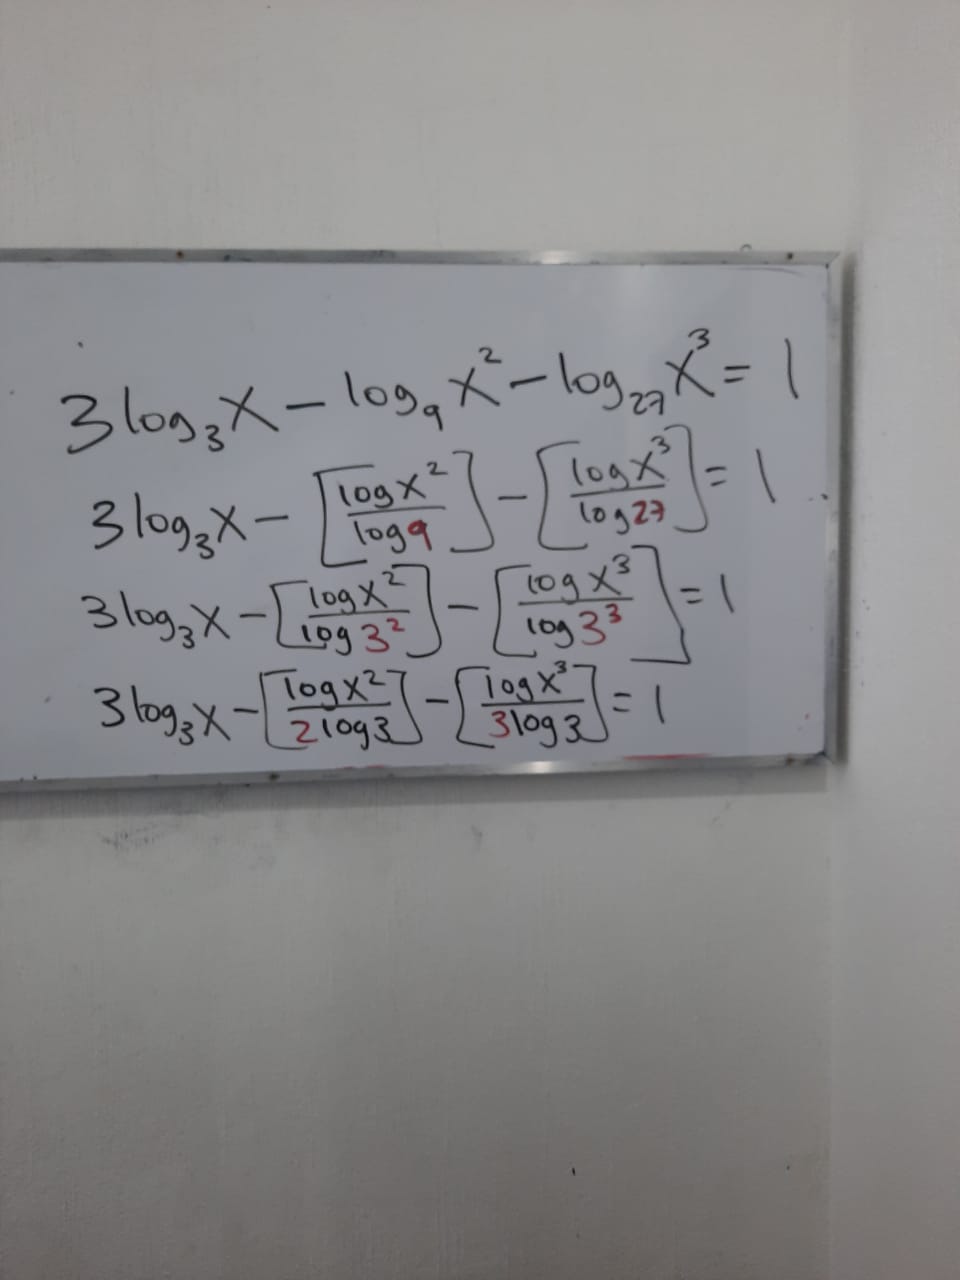 3log₃x − log₉x² − log₂₇x³ = 1
3log₃x − [logx²/log9] − [logx³/log27] = 1
3log₃x − [logx²/log3²] − [logx³/log3³] = 1
3log₃x − [logx²/2log3] − [logx³/3log3] = 1